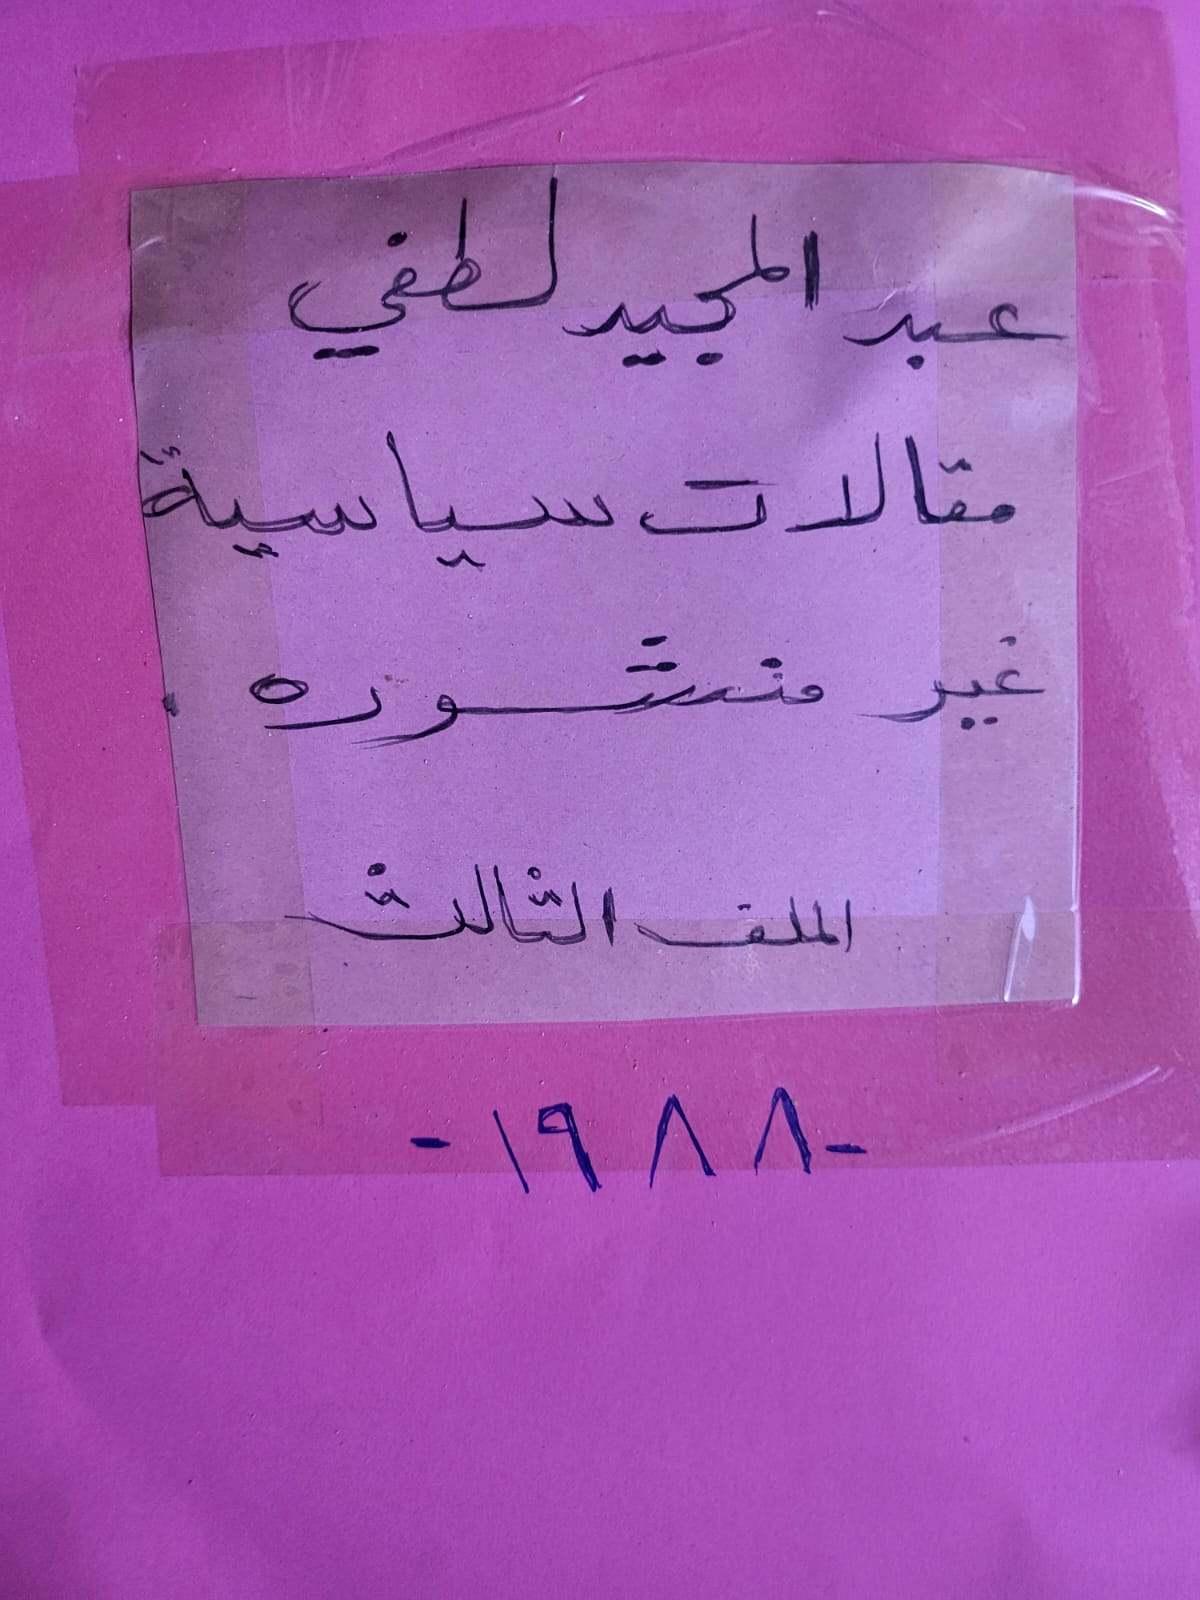 عبد المجيد لطفي
مقالات سياسية
غير منشوره .
الملف الثالث
-١٩٨٨-